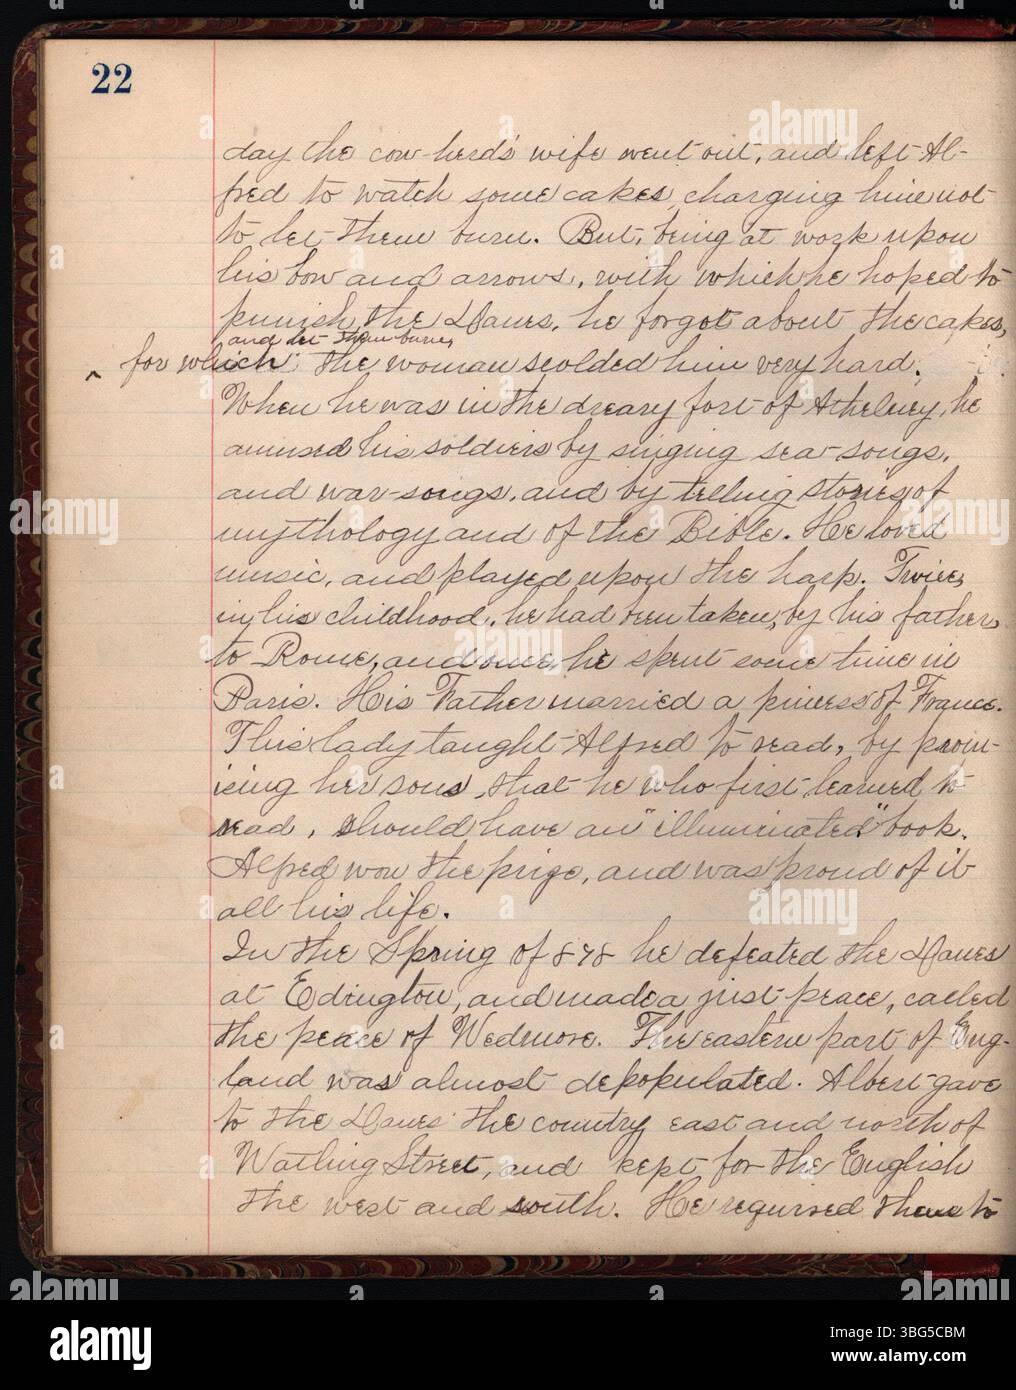 22
day the cow-herd's wife went out, and left Al-
fred to watch some cakes, charging him not
to let them burn. But, being at work upon
his bow and arrows, with which he hoped to
punish the Danes, he forgot about the cakes,
and let them burn,
^ for which the woman scolded him very hard.
When he was in the dreary fort of Athelney, he
amused his soldiers by singing sea-songs,
and war-songs, and by telling stories of
mythology and of the Bible. He loved
music, and played upon the harp. Twice,
in his childhood, he had been taken, by his father,
to Rome, and once, he spent some time in
Paris. His Father married a princess of France.
This lady taught Alfred to read, by prom-
ising her sons, that he who first learned to
read, should have an "illuminated" book.
Alfred won the prize, and was proud of it
all his life.
In the Spring of 878 he defeated the Danes
at Edington, and made a just peace, called
the peace of Wedmore. The eastern part of Eng-
land was almost depopulated. Albert gave
to the Danes the country east and north of
Watling Street, and kept for the English
the west and south. He required them to
alamy
alamy
Image ID: 3BG5CBM
www.alamy.com